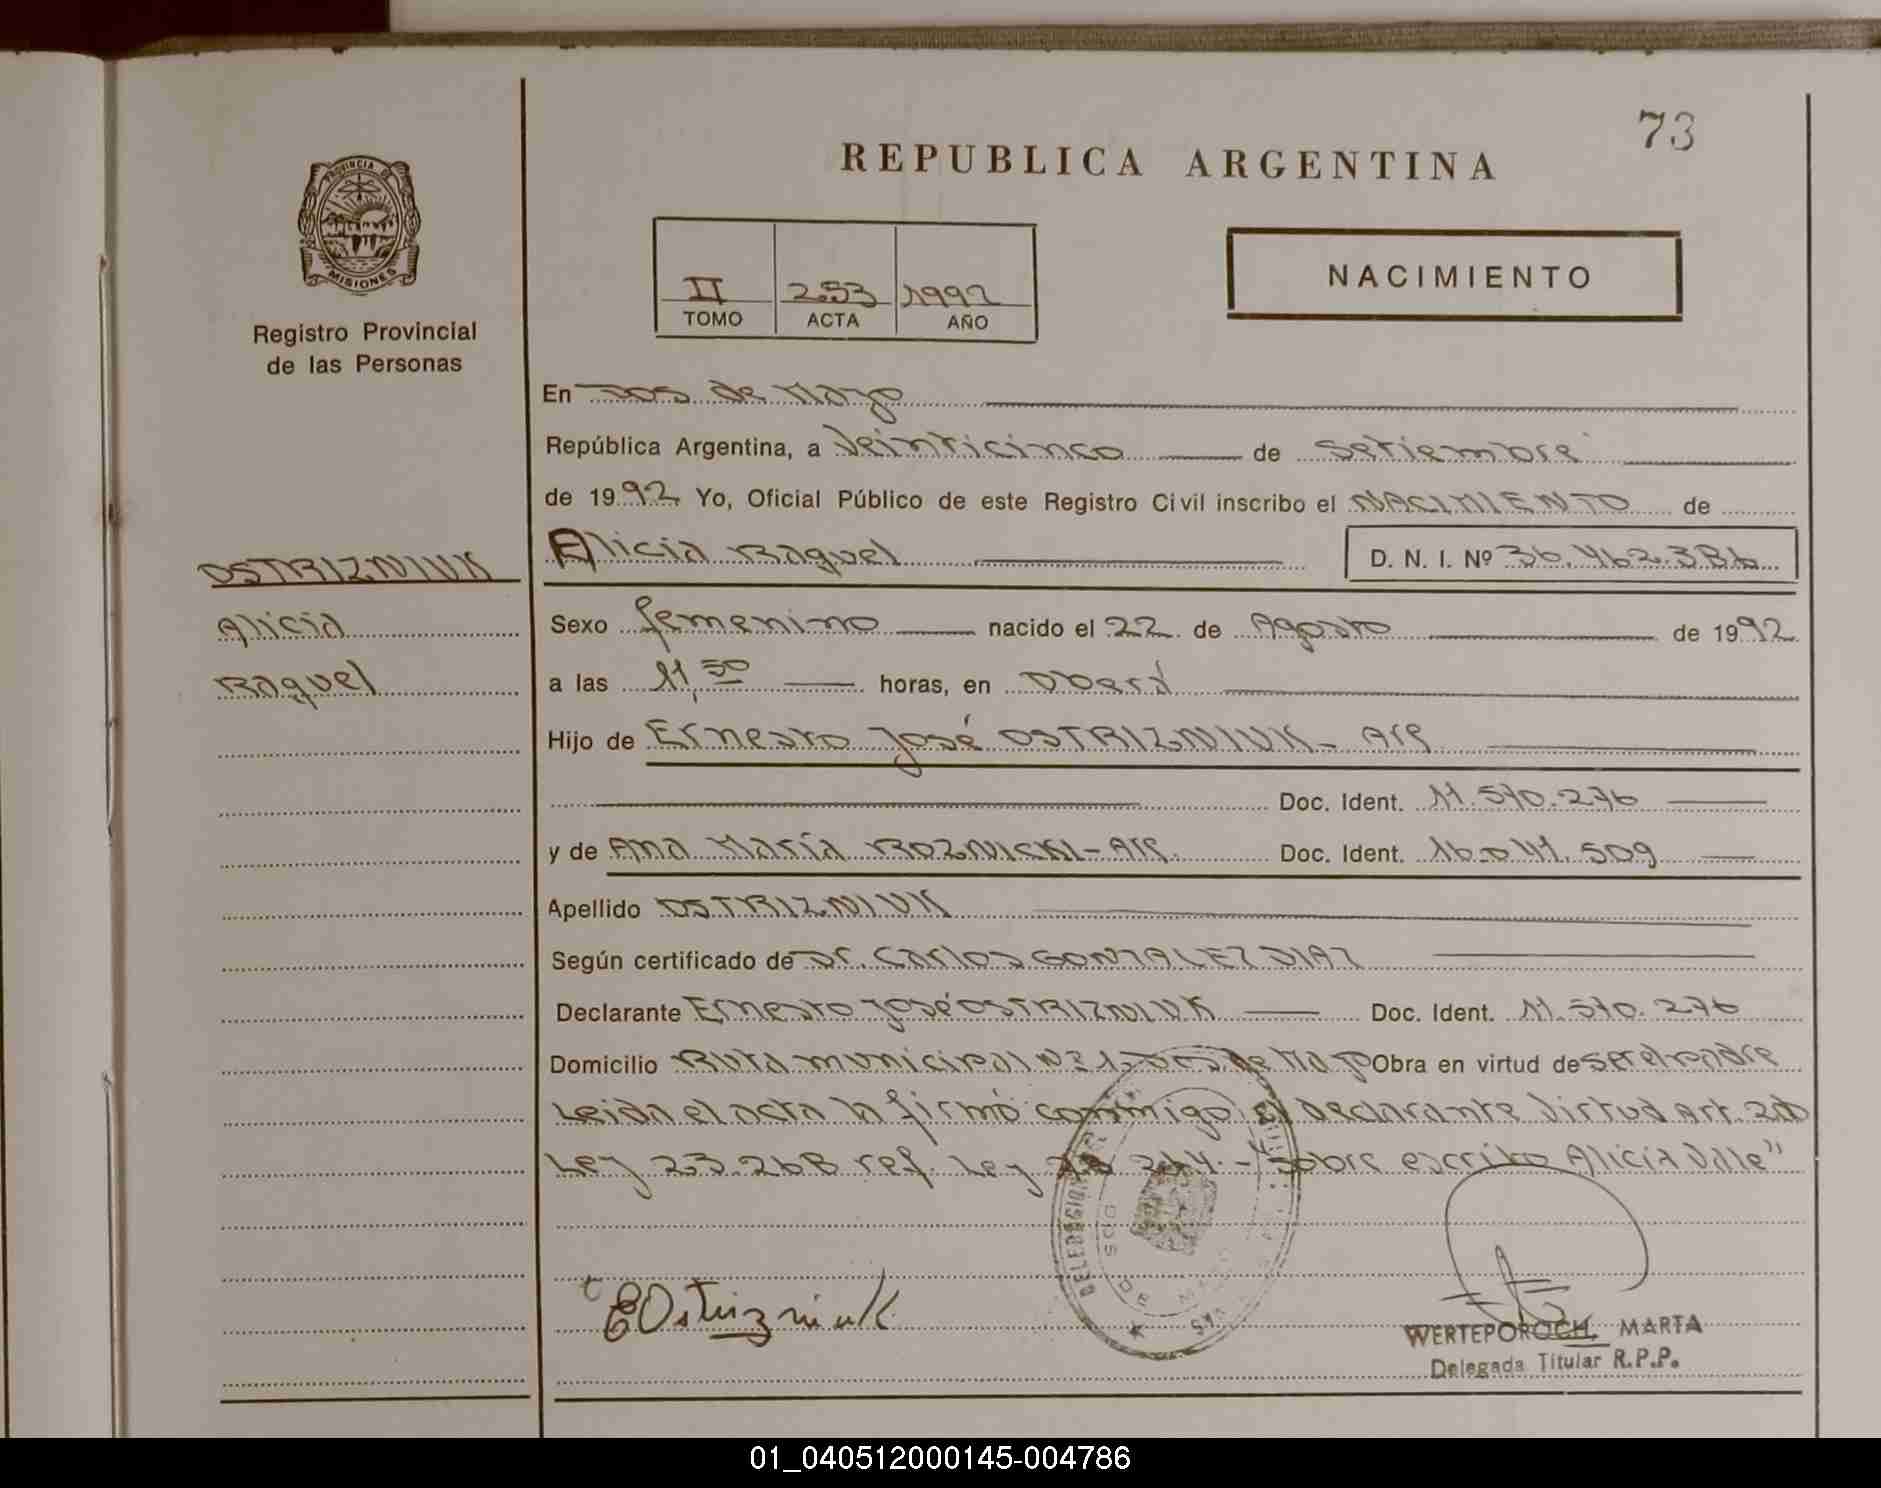 73
REPUBLICA ARGENTINA
PROVINCIA DE
MISIONES
Registro Provincial
de las Personas
II 253 1992
TOMO ACTA AÑO
NACIMIENTO
En Dos de Mayo
República Argentina, a Veinticinco de Setiembre
de 1992 Yo, Oficial Público de este Registro Civil inscribo el NACIMIENTO de
OSTRIZNIUK
Alicia Raquel D. N. I. Nº 36.462.386
Alicia
Raquel
Sexo femenino nacido el 22 de Agosto de 1992
a las 11,50 horas, en Oberá
Hijo de Ernesto José OSTRIZNIUK - Arg
Doc. Ident. 11.570.276
y de Ana María ROZNICKI - Arg. Doc. Ident. 16.041.509
Apellido OSTRIZNIUK
Según certificado de Dr. Carlos GONZALEZ DIAZ
Declarante Ernesto José OSTRIZNIUK Doc. Ident. 11.570.276
Domicilio Ruta municipal Nº 1, Dos de Mayo Obra en virtud de ser el padre
Leida el acta la firmó conmigo el declarante virtud Art.
Ley 23.268 ref. Ley - sobre escrito Alicia Vale"
DOS DE MAYO
EOstrizniuk
WERTEPOROCH, MARTA
Delegada Titular R.P.P.
01_040512000145-004786